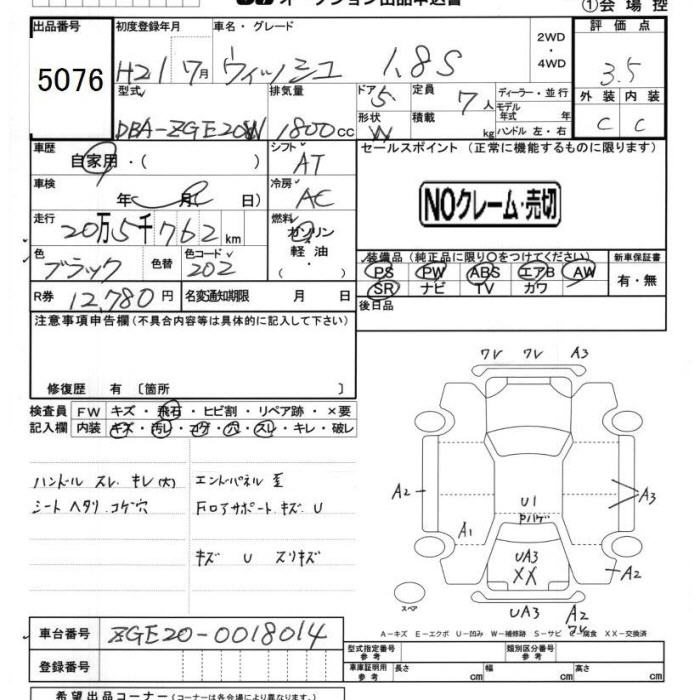 ①会場控
出品番号 初度登録年月 車名・グレード 2WD ・4WD 評価点
5076 H21 7月 ウィッシュ 1.8S 3.5
型式 排気量 ドア 5 定員 7人 ディーラー・並行 外装 内装
DBA-ZGE20W 1800cc 形状 W 積載 kg モデル年式 年 ハンドル 左・右 C C
車歴 自家用・( ) シフト AT セールスポイント(正常に機能するものに限ります)
車検 年 月( 日) 冷房 AC NOクレーム・売切
走行 20万5千762km 燃料 ガソリン 軽油 ・( )・
色 ブラック 色替 色コード 202 装備品(純正品に限り○をつけてください) 新車保証書
PS PW ABS エアB AW 有・無
SR ナビ TV カワ
R券 12,780円 名変通知期限 月 日 後日品
注意事項申告欄(不具合内容等は具体的に記入して下さい)
修復歴 有〔箇所 〕
検査員記入欄 FW キズ・飛石・ヒビ割・リペア跡・×要
内装 キズ・汚レ・コゲ・穴・スレ・キレ・破レ
ハンドル スレ キレ(大) エンドパネル 歪
シート ヘタリ コゲ穴 Fロアサポート キズ U
キズ U スリキズ
ワレ ワレ A3
A2 U1 A3
A1 UA3 XX A2
スペア UA3 A2 ワレ
A-キズ E-エクボ U-凹み W-補修跡 S-サビ C-腐食 XX-交換済
車台番号 ZGE20-0018014
登録番号 型式指定番号 参考 類別区分番号 参考
車庫証明用 参考 長さ cm 幅 cm 高さ cm
希望出品コーナー(コーナーは各会場により異なります。)